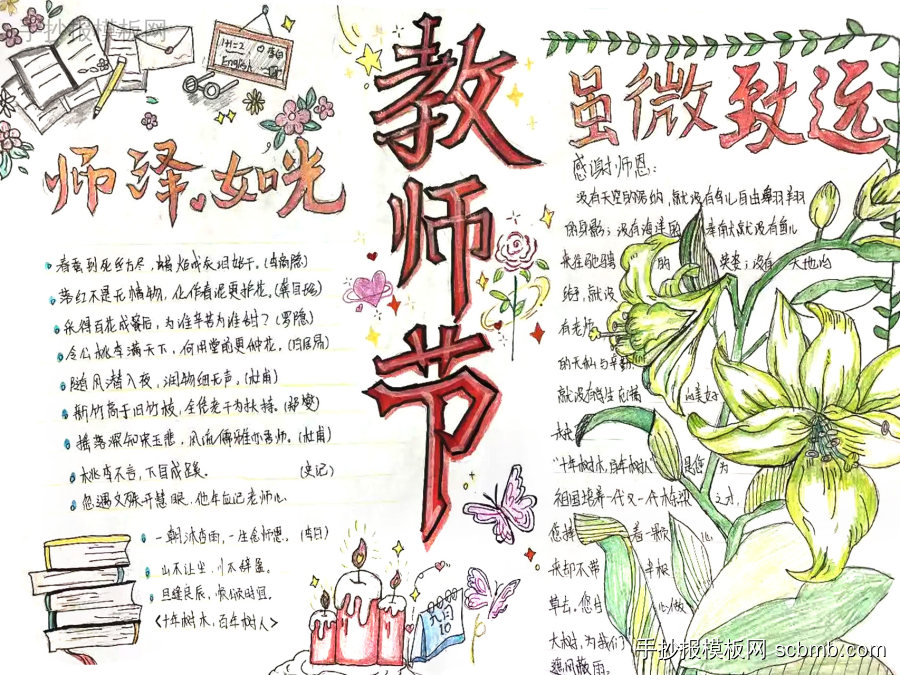 手抄报模板网
1+1=2
English
教师节
师泽如光
春蚕到死丝方尽，蜡炬成灰泪始干。(李商隐)
落红不是无情物，化作春泥更护花。(龚自珍)
采得百花成蜜后，为谁辛苦为谁甜？(罗隐)
令公桃李满天下，何用堂前更种花。(白居易)
随风潜入夜，润物细无声。(杜甫)
新竹高于旧竹枝，全凭老干为扶持。(郑燮)
摇落深知宋玉悲，风流儒雅亦吾师。(杜甫)
桃李不言，下自成蹊。(史记)
忽遇文殊开慧眼，他年应记老师心
一朝沐杏雨，一生念师恩。(李白)
山不让尘，川不辞盈。
且逢良辰，愿你时宜。
《十年树木，百年树人》
九月
10
虽微致远
感谢师恩：
没有天空的海纳，就没有鸟儿自由翱翔
的身影；没有海洋的
就没有鱼儿
的 英姿；没有大地的
给予，就没
有老师
的
就没有
的美好
“十年树木，百年树人” 是您 为
祖国培养一代又一代
您捧着一颗心
来却不带 半根
草去。您甘
大树，为我们
遮风蔽雨。
手抄报模板网 scbmb.com